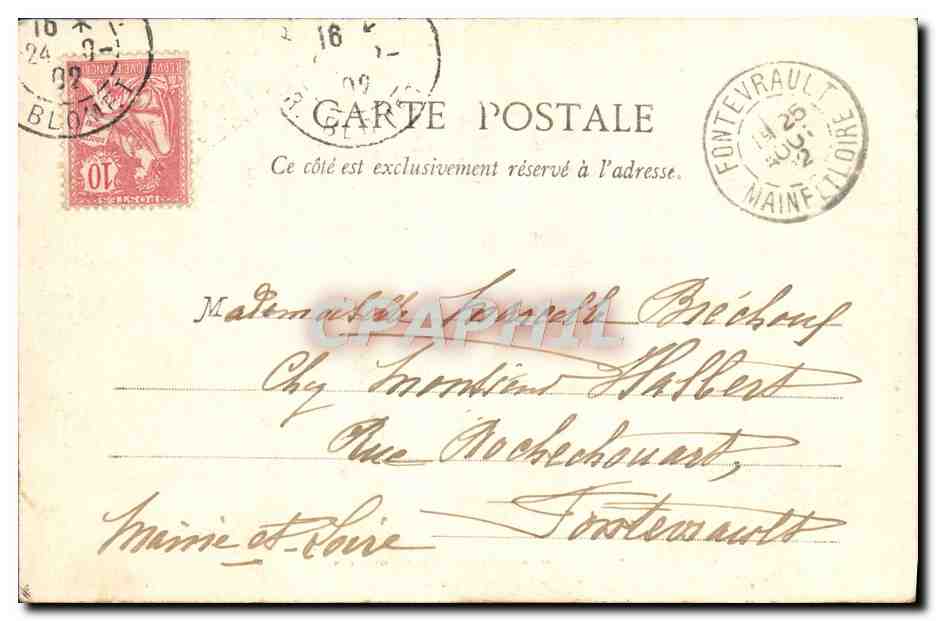 16
24
02
BLOMET
RÉPUBLIQUE FRANÇAISE
10
POSTES
16
BL
CARTE POSTALE
Ce côté est exclusivement réservé à l'adresse.
FONTEVRAULT
25
AOU
2
MAINE ET LOIRE
Mademoiselle Marcelle
CPAPHIL
Chez Monsieur Halbert
Rue Rochechouart,
Fontevrault
Maine et-Loire